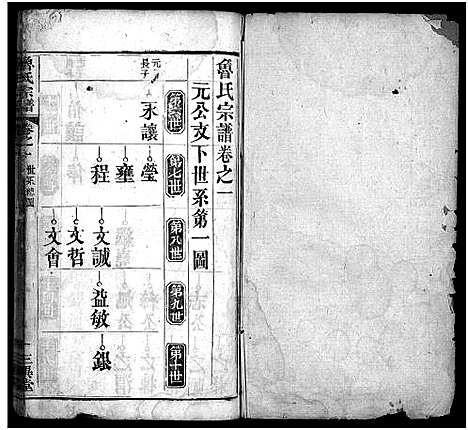 魯氏宗譜卷之一
元公支下世系第一圖
第六世
第七世
第八世
第九世
第十世
元
長子
永讓
瑩
雍
程
文誠
文哲
文會
益敏
銀
魯氏宗譜
卷之一
世系總圖
三異堂